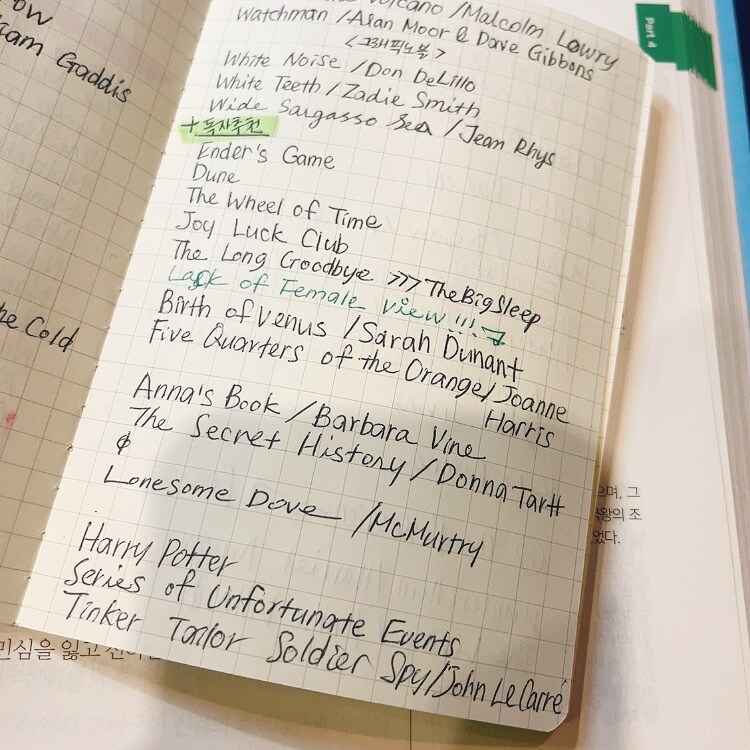 ow
iam Gaddis
he Cold
Volcano / Malcolm Lowry
Watchman / Alan Moor & Dave Gibbons
<그래픽노블>
White Noise / Don DeLillo
White Teeth / Zadie Smith
Wide Sargasso Sea / Jean Rhys
+ 독자추천
Ender's Game
Dune
The Wheel of Time
Joy Luck Club
The Long Goodbye >>> The Big Sleep
Lack of Female View!!!
Birth of Venus / Sarah Dunant
Five Quarters of the Orange / Joanne
Harris
Anna's Book / Barbara Vine
The Secret History / Donna Tartt
Lonesome Dove / McMurtry
Harry Potter
Series of Unfortunate Events
Tinker Tailor Soldier Spy / John Le Carré
Part 4
으며, 그
왕의 조
었다.
민심을 잃고